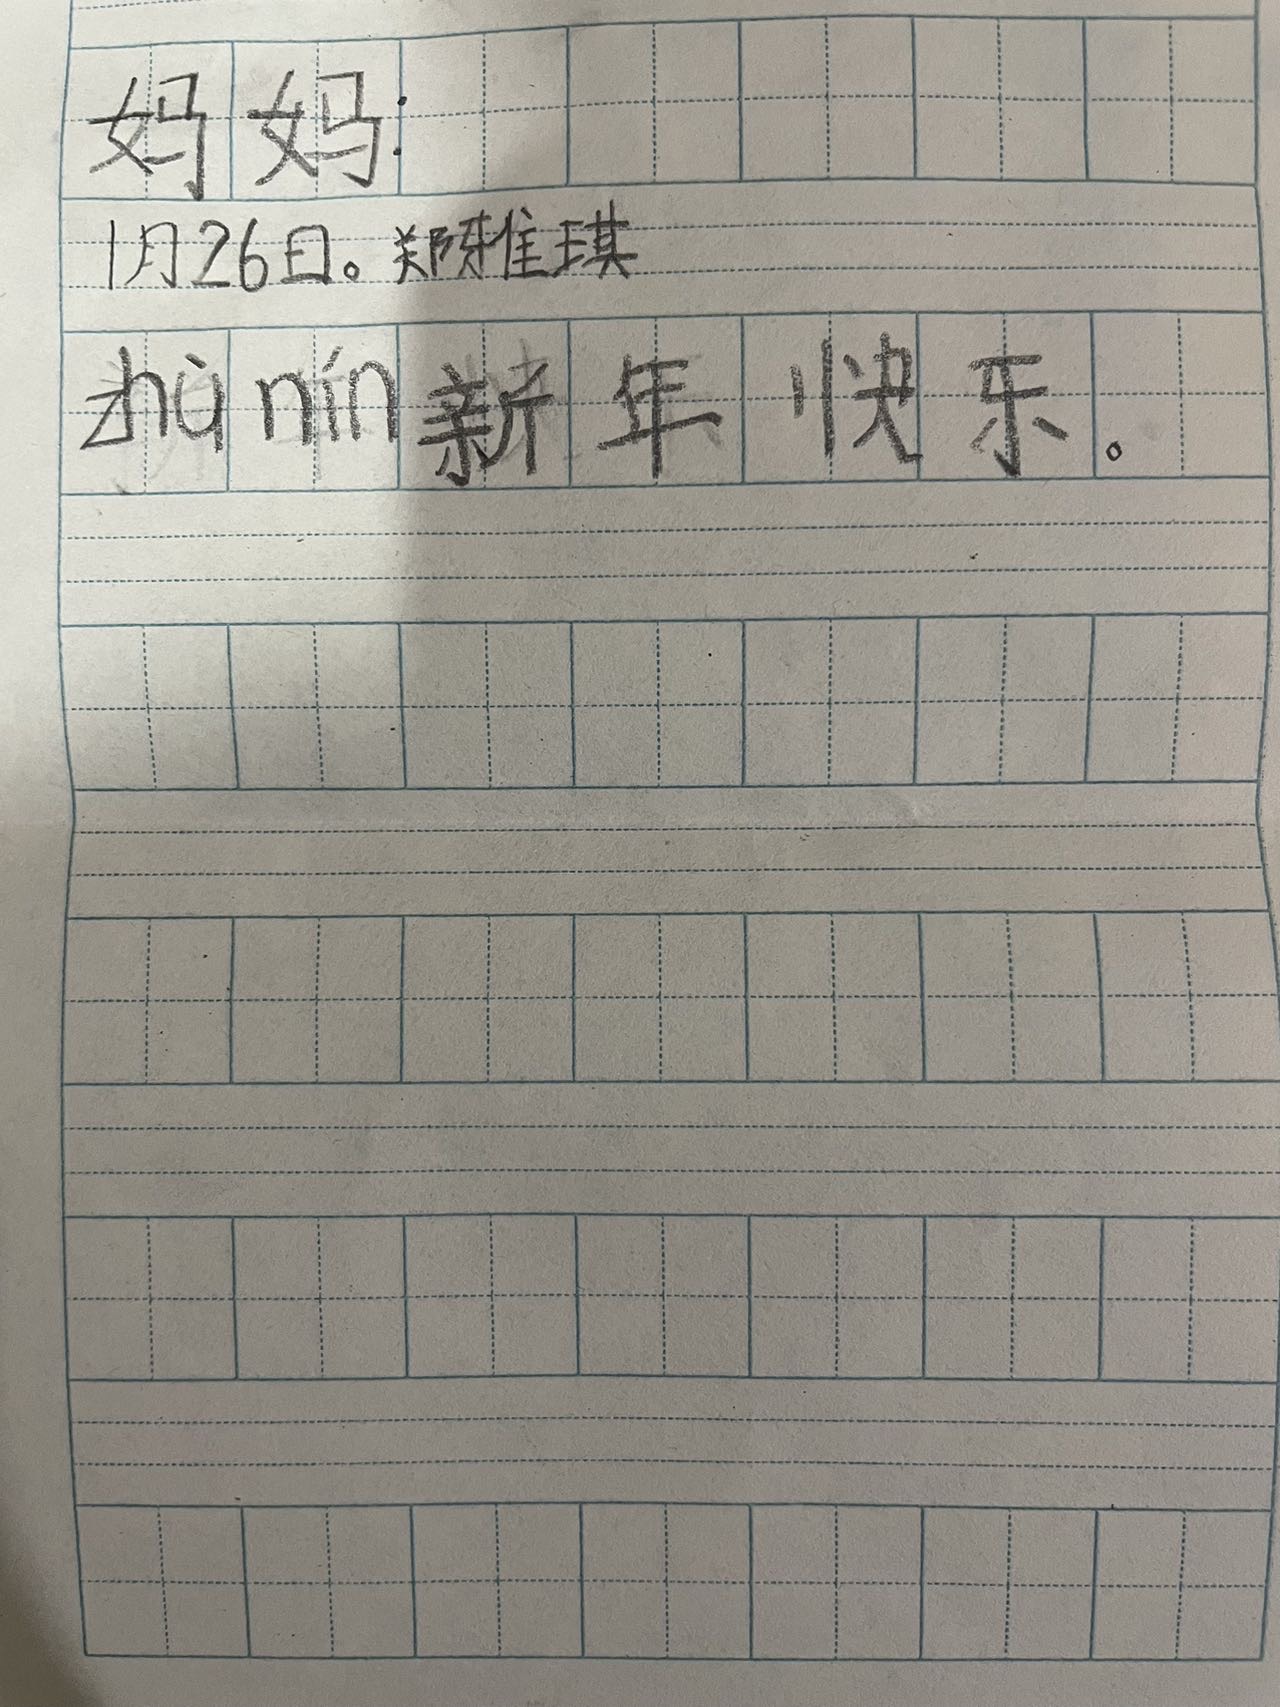 妈妈:
1月26日。郑雅琪
zhù nín 新年快乐。